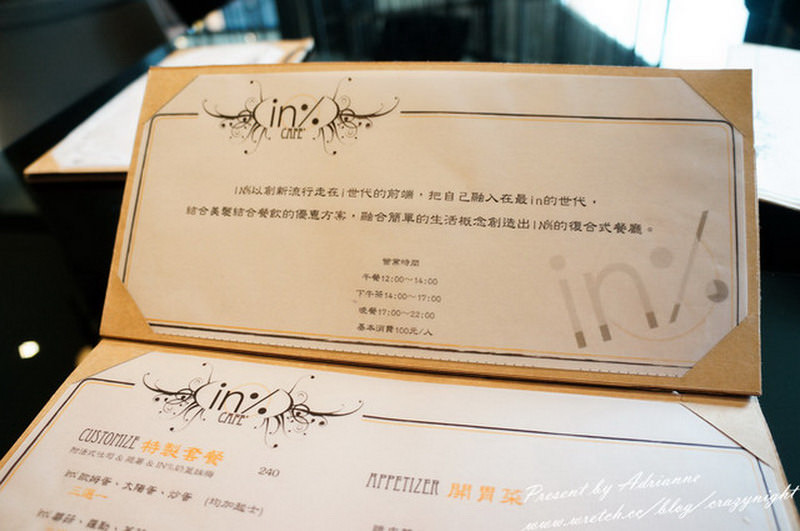 in%
CAFE'
IN%以創新流行走在i世代的前端，把自己融入在最in的世代，
結合美髮結合餐飲的優惠方案，融合簡單的生活概念創造出IN%的復合式餐廳。
營業時間
午餐12:00～14:00
下午茶14:00～17:00
晚餐17:00～22:00
基本消費100元/人
in%
in%
CAFE'
CUSTOMIZE 特製套餐
附法式吐司 & 蔬菓 & IN%奶蓋綠梅 240
歐姆蛋、太陽蛋、炒蛋 (均加起士)
二選一
APPETIZER 開胃菜
Present by Adrianne
www.wretch.cc/blog/crazynight